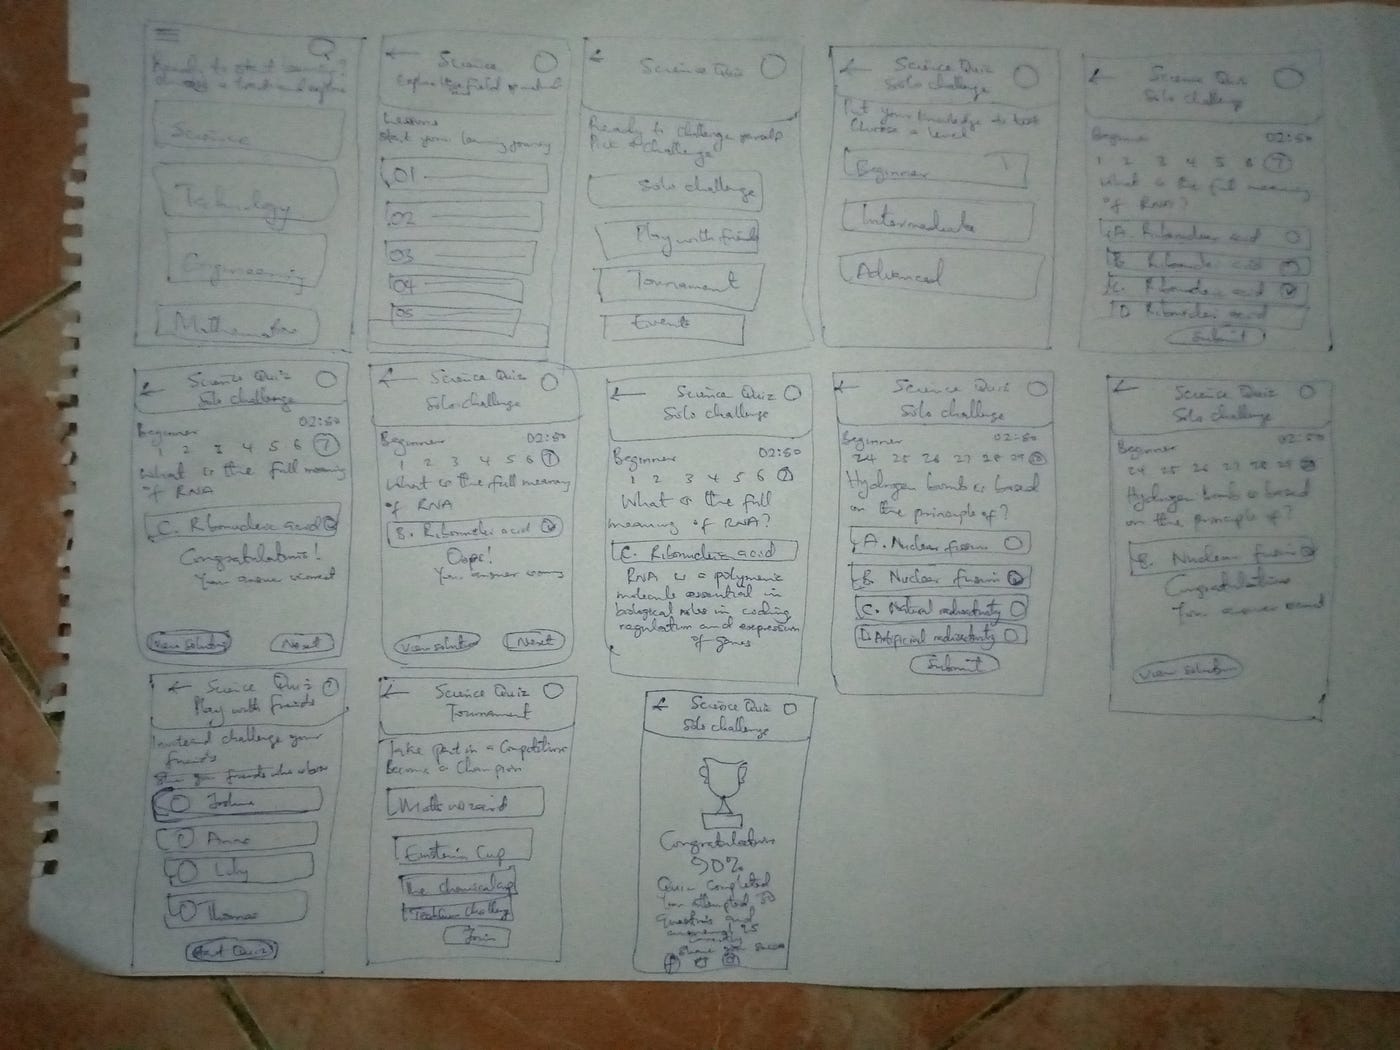 Ready to start learning?
Science
Technology
Engineering
Mathematics
Science
Explore the field of
Lessons
Start your learning journey
01
02
03
04
05
Science Quiz
Ready to challenge yourself
Pick a challenge
Solo challenge
Play with friends
Tournament
Events
Science Quiz
Solo challenge
Put your knowledge to test
Choose a level
Beginner
Intermediate
Advanced
Science Quiz
Solo challenge
Beginner 02:50
1 2 3 4 5 6 7
What is the full meaning
of RNA?
A. acid
B. acid
C. acid
D. acid
Submit
Science Quiz
Solo challenge
Beginner 02:50
1 2 3 4 5 6 7
What is the full meaning
of RNA
C. acid
Congratulations!
View solution Next
Science Quiz
Solo challenge
Beginner 02:50
1 2 3 4 5 6 7
What is the full meaning
of RNA
B. acid
Oops!
View solution Next
Science Quiz
Solo challenge
Beginner 02:50
1 2 3 4 5 6 7
What is the full
meaning of RNA?
C. acid
RNA is a polymeric
molecule essential in
biological roles in coding
regulation and expression
of genes
Science Quiz
Solo challenge
Beginner 02:50
24 25 26 27 28 29
Hydrogen bomb is based
on the principle of?
A. Nuclear
B. Nuclear fusion
C. Natural radioactivity
D. Artificial radioactivity
Submit
Science Quiz
Solo challenge
Beginner 02:50
24 25 26 27 28 29
Hydrogen bomb is based
on the principle of?
B. Nuclear fusion
Congratulations
View solution
Science Quiz
Play with friends
challenge your
friends
Joshua
Anna
Thomas
Start Quiz
Science Quiz
Tournament
Take part in a Competition
Become a Champion
Maths wizard
Einstein Cup
The chemical cup
challenge
Join
Science Quiz
Solo challenge
Congratulations
90%
Quiz completed
You attempted 30
questions and